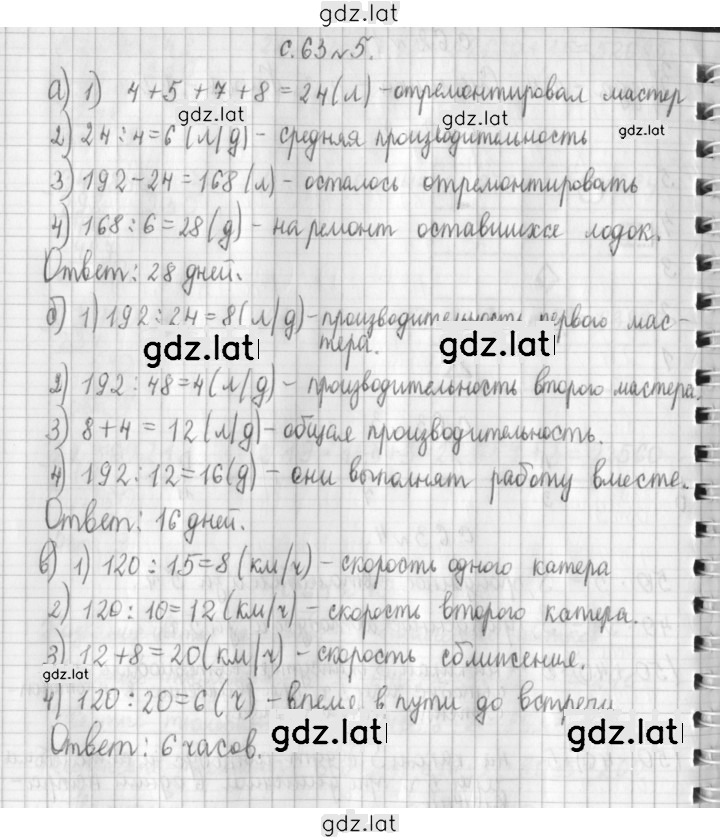 gdz.lat
с. 63 № 5.
а) 1) 4 + 5 + 7 + 8 = 24 (л) - отремонтировал мастер
gdz.lat gdz.lat gdz.lat
2) 24 : 4 = 6 (л/д) - средняя производительность
3) 192 - 24 = 168 (л) - осталось отремонтировать
4) 168 : 6 = 28 (д) - на ремонт оставшихся лодок.
Ответ: 28 дней.
б) 1) 192 : 24 = 8 (л/д) - производительность первого мас-
тера.
gdz.lat gdz.lat
2) 192 : 48 = 4 (л/д) - производительность второго мастера.
3) 8 + 4 = 12 (л/д) - общая производительность.
4) 192 : 12 = 16 (д) - они выполнят работу вместе.
Ответ: 16 дней.
в) 1) 120 : 15 = 8 (км/ч) - скорость одного катера
2) 120 : 10 = 12 (км/ч) - скорость второго катера.
3) 12 + 8 = 20 (км/ч) - скорость сближения.
gdz.lat
4) 120 : 20 = 6 (ч) - время в пути до встречи
gdz.lat gdz.lat
Ответ: 6 часов.
gdz.lat